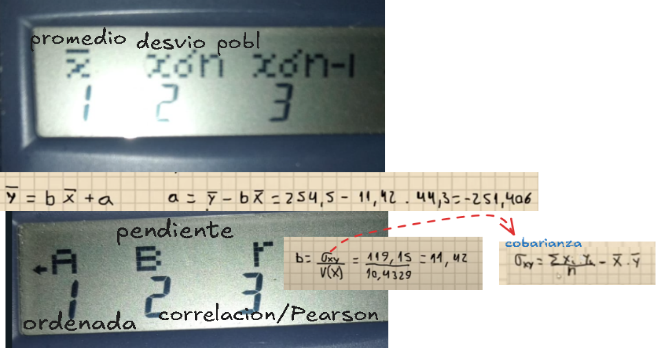 promedio desvio pobl
x̄ xσn xσn-1
1 2 3
ȳ = b x̄ + a a = ȳ - b x̄ = 254,5 - 11,42 . 44,3 = -251,406
pendiente
←A B r
1 2 3
ordenada correlacion/Pearson
b = σxy / V(x) = 119,15 / 10,4329 = 11,42
cobarianza
σxy = Σ xi . yi / n - x̄ . ȳ